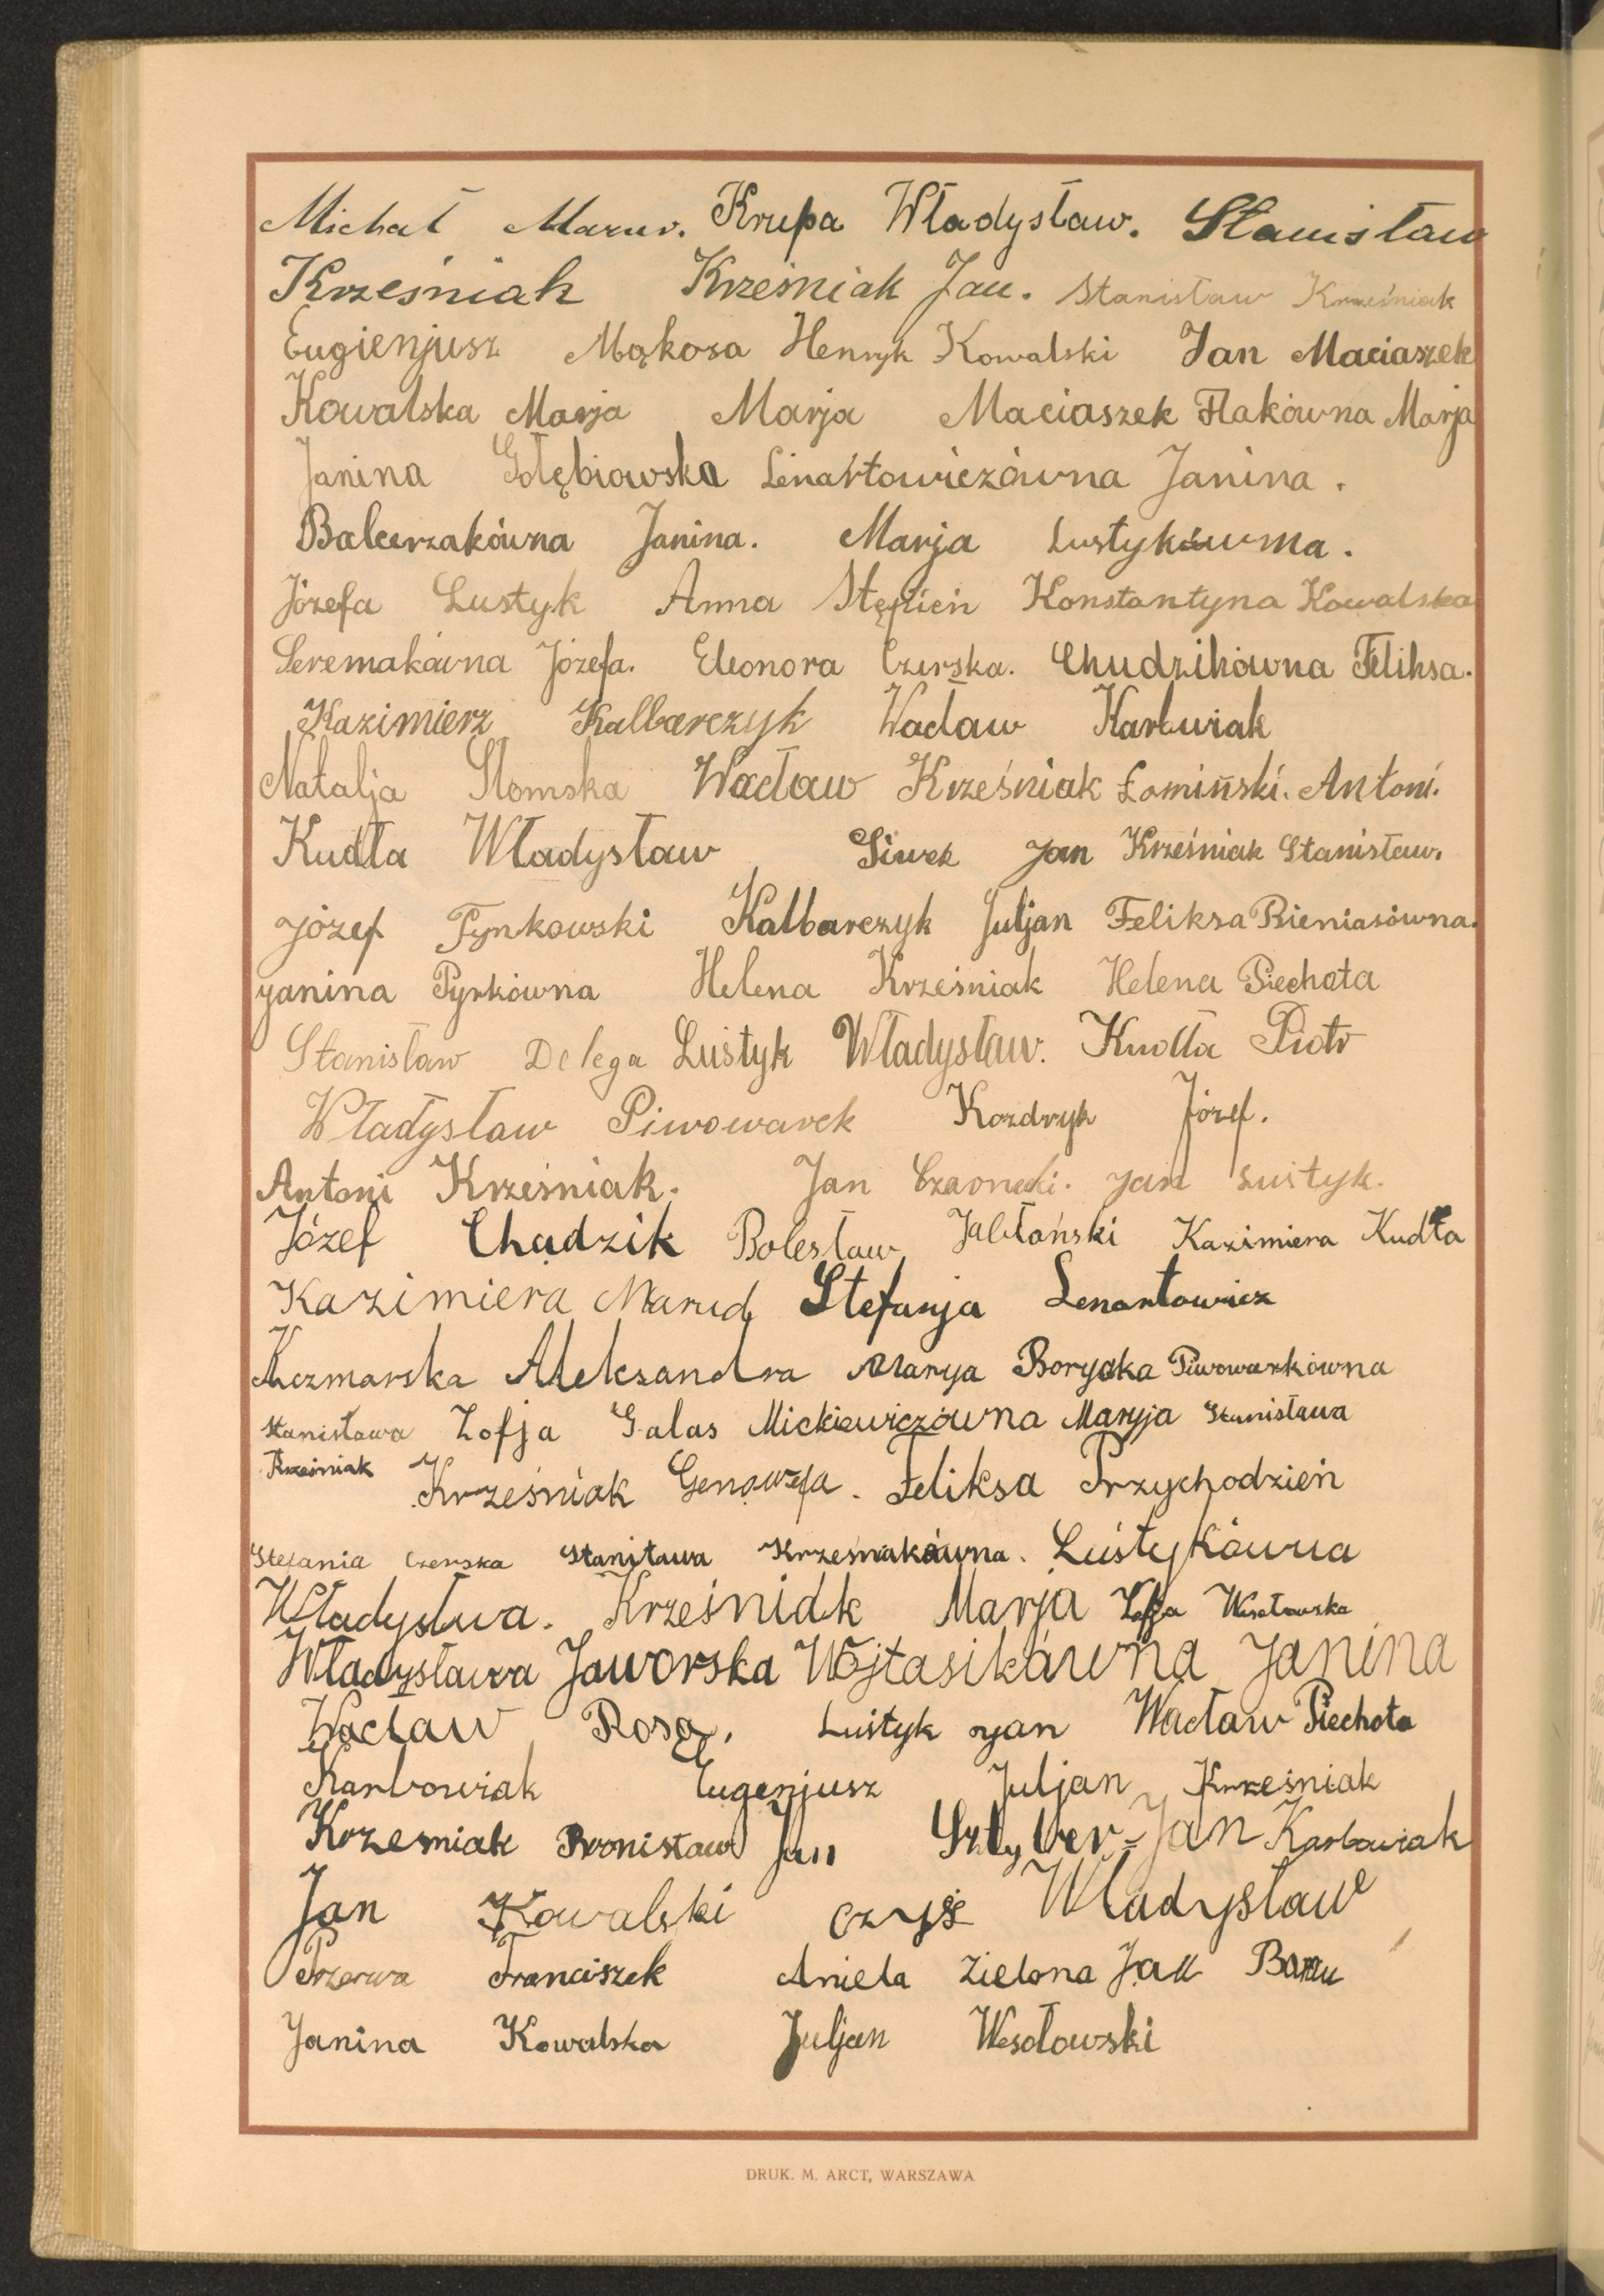 Michał Mazur. Krupa Władysław. Stanisław
Krześniak Krześniak Jan. Stanisław Krześniak
Eugienjusz Mąkosa Henryk Kowalski Jan Maciaszek
Kowalska Marja Marja Maciaszek Flakówna Marja
Janina Gołębiowska Lenartowiczówna Janina.
Balcerzakówna Janina. Marja Lustykówna.
Józefa Lustyk Anna Stępień Konstantyna Kowalska
Seremakówna Józefa. Eleonora Czerska. Chudzikówna Feliksa.
Kazimierz Kalbarczyk Wacław Karbwiak
Natalja Słomska Wacław Krześniak Łomiński. Antoni.
Kudła Władysław Siwek Jan Krześniak Stanisław.
Józef Tynkowski Kalbarczyk Juljan Feliksa Bieniasówna.
Janina Pyrkówna Helena Krześniak Helena Piechota
Stanisław Delega Luśtyk Władysław. Kudła Piotr
Władysław Piwowarek Kozdryk Józef.
Antoni Krześniak. Jan Jan Luśtyk.
Józef Chudzik Bolesław Jabłoński Kazimiera Kudła
Kazimiera Stefanja Lenartowicz
Aleksandra Marya Borycka Piwowarkówna
Stanisława Zofja Galas Mickiewiczówna Maryja Stanisława
Krześniak Krześniak Genowefa. Feliksa Przychodzień
Stefania Czerska Stanisława Krześniakówna. Luśtykówna
Władysława. Krześniak Marja Zofja Wesołowska
Władysława Jaworska Wójtasikówna Janina
Wacław Rosa. Luśtyk Jan Wacław Piechota
Karbowiak Eugenjusz Juljan Krześniak
Krzesniak Bronisław Jan Sztylver- Jan Karbowiak
Jan Kowalski Czyż Władysław
Przerwa Franciszek Aniela Zielona Jan
Janina Kowalska Juljan Wesołowski
DRUK. M. ARCT, WARSZAWA